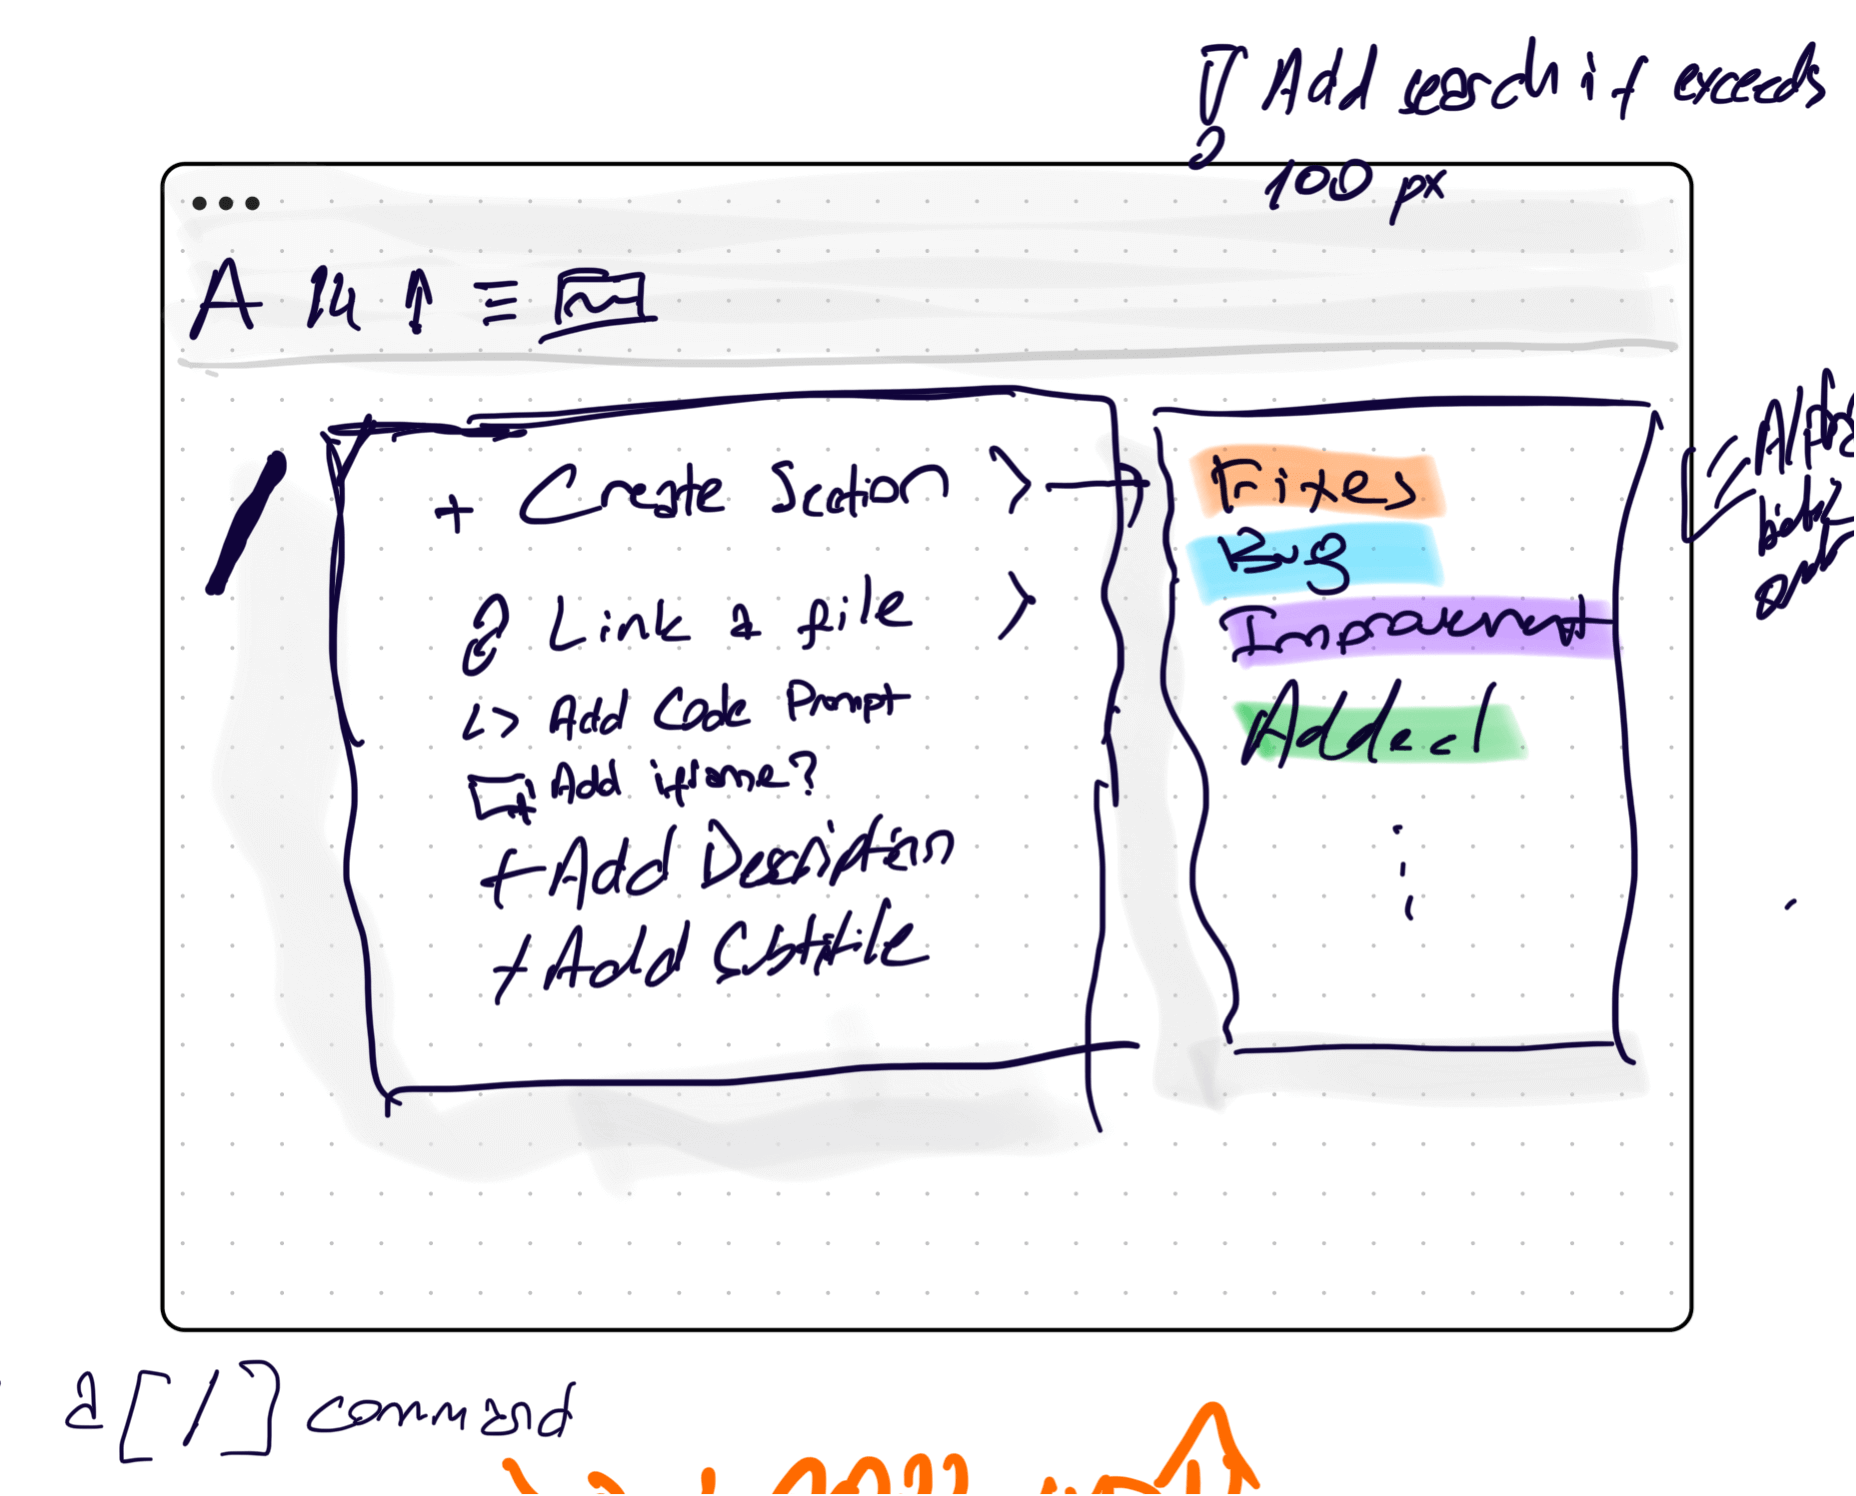 ! Add search if exceeds
100 px
A 14 ↑ ≡
/
+ Create Section >
Link a file >
<> Add Code Prompt
Add iframe?
+ Add Description
+ Add Subtitle
Fixes
Bug
Improvement
Added
a [/] command